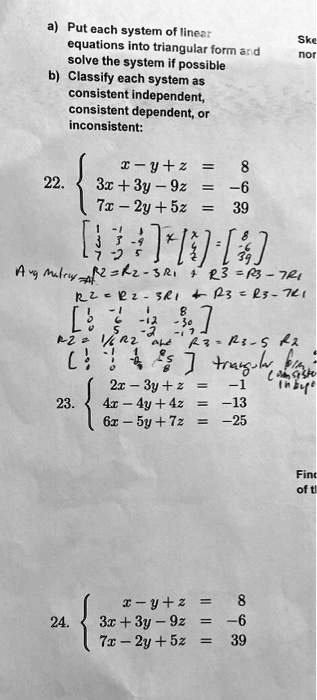 a) Put each system of linear
equations into triangular form and
solve the system if possible
b) Classify each system as
consistent independent,
consistent dependent, or
inconsistent:
Ske
nor
22. { x − y + z = 8
3x + 3y − 9z = −6
7x − 2y + 5z = 39
[1 -1 1
3 3 -9
7 -2 5] * [x
y
z] = [8
-6
39]
R2 = R2 - 3R1 & R3 = R3 - 7R1
R2 = R2 - 3R1 & R3 = R3 - 7R1
[1 -1 1 8
0 6 -12 -30
0 5 -2 -17]
R2 = 1/6 R2 and R3 = R3 - 5 R2
triangular form
23. { 2x − 3y + z = −1
4x − 4y + 4z = −13
6x − 5y + 7z = −25
Find
of t
24. { x − y + z = 8
3x + 3y − 9z = −6
7x − 2y + 5z = 39